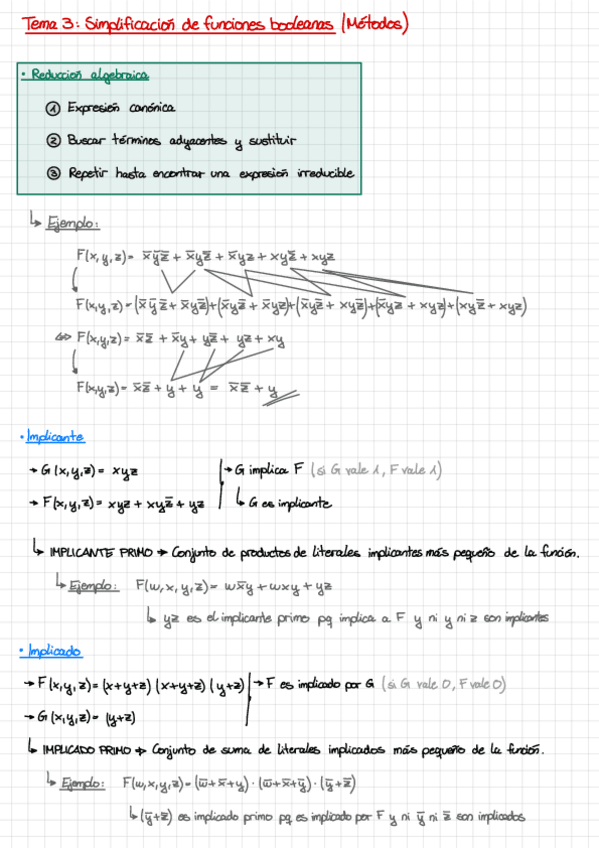 Tema 3: Simplificación de funciones booleanas (Métodos)
• Reducción algebraica
① Expresión canónica
② Buscar términos adyacentes y sustituir
③ Repetir hasta encontrar una expresión irreducible
↳ Ejemplo:
F(x, y, z) = x̄ȳz̄ + x̄yz̄ + x̄yz + xyz̄ + xyz
F(x,y,z) = (x̄ȳz̄ + x̄yz̄)+(x̄yz + x̄yz̄)+(x̄yz̄ + xyz̄)+(x̄yz + xyz)+(xyz̄ + xyz)
⇔ F(x,y,z) = x̄z̄ + x̄y + yz̄ + yz + xy
F(x,y,z) = x̄z̄ + y + y = x̄z̄ + y
• Implicante
→ G(x,y,z) = xyz
→ G implica F (si G vale 1, F vale 1)
→ F(x,y,z) = xyz + xyz̄ + yz
↳ G es implicante
↳ IMPLICANTE PRIMO → Conjunto de productos de literales implicantes más pequeño de la función.
↳ Ejemplo: F(w,x,y,z) = wx̄y + wxy + yz
↳ yz es el implicante primo pq implica a F y ni y ni z son implicantes
• Implicado
→ F(x,y,z) = (x+y+z) (x+y+z̄) (y+z)
→ F es implicado por G (si G vale 0, F vale 0)
→ G(x,y,z) = (y+z)
↳ IMPLICADO PRIMO → Conjunto de suma de literales implicados más pequeño de la función.
↳ Ejemplo: F(w,x,y,z) = (w̄+x+y) · (w̄+x̄+ȳ) · (ȳ+z̄)
↳ (ȳ+z) es implicado primo pq es implicado por F y ni ȳ ni z̄ son implicados